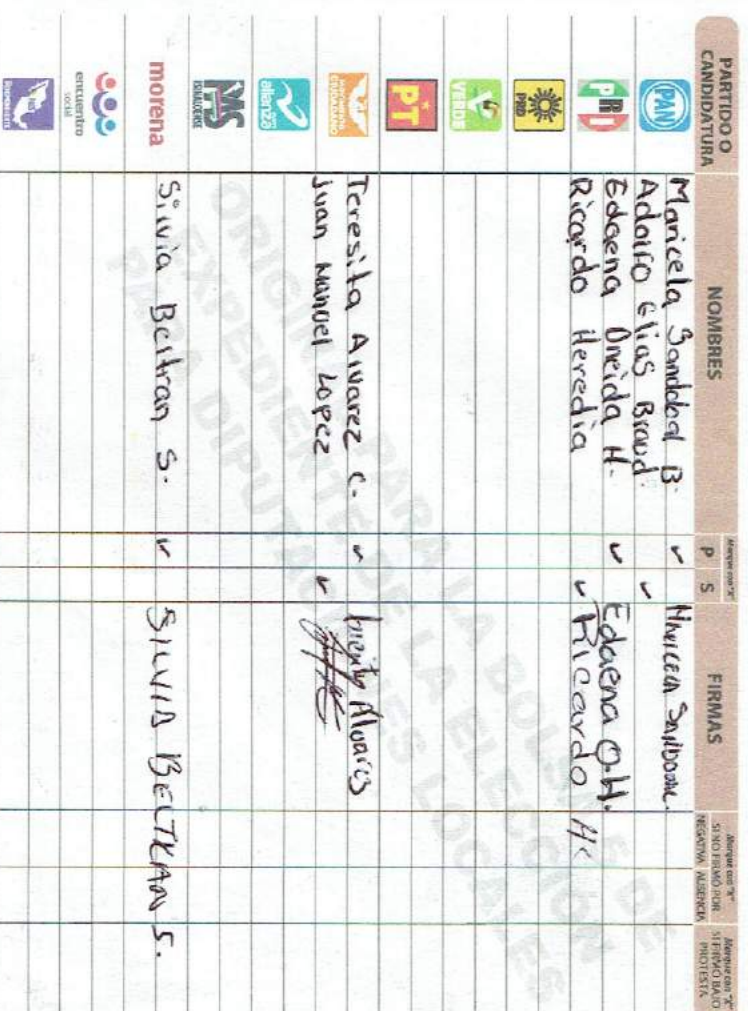 PARTIDO O CANDIDATURA
NOMBRES
Marque con "X"
P S
FIRMAS
Marque con "X"
SI NO FIRMÓ POR
NEGATIVA AUSENCIA
Marque con "X"
SI FIRMÓ BAJO
PROTESTA
PAN
Maricela Sandoval B.
Adolfo Elias Braud
PRI
Edaena Oneida H. Edaena O.H.
Ricardo Heredia Ricardo
PRD
VERDE
PT
MOVIMIENTO CIUDADANO
Teresita Alvarez C. Alvarez
Juan Manuel Lopez
alianza
PAS
SINALOENSE
morena
Silvia Beltran S. SILVIA BELTRAN S.
encuentro social
ORIGINAL PARA LA BOLSA DE
EXPEDIENTE DE LA ELECCIÓN
PARA DIPUTACIONES LOCALES